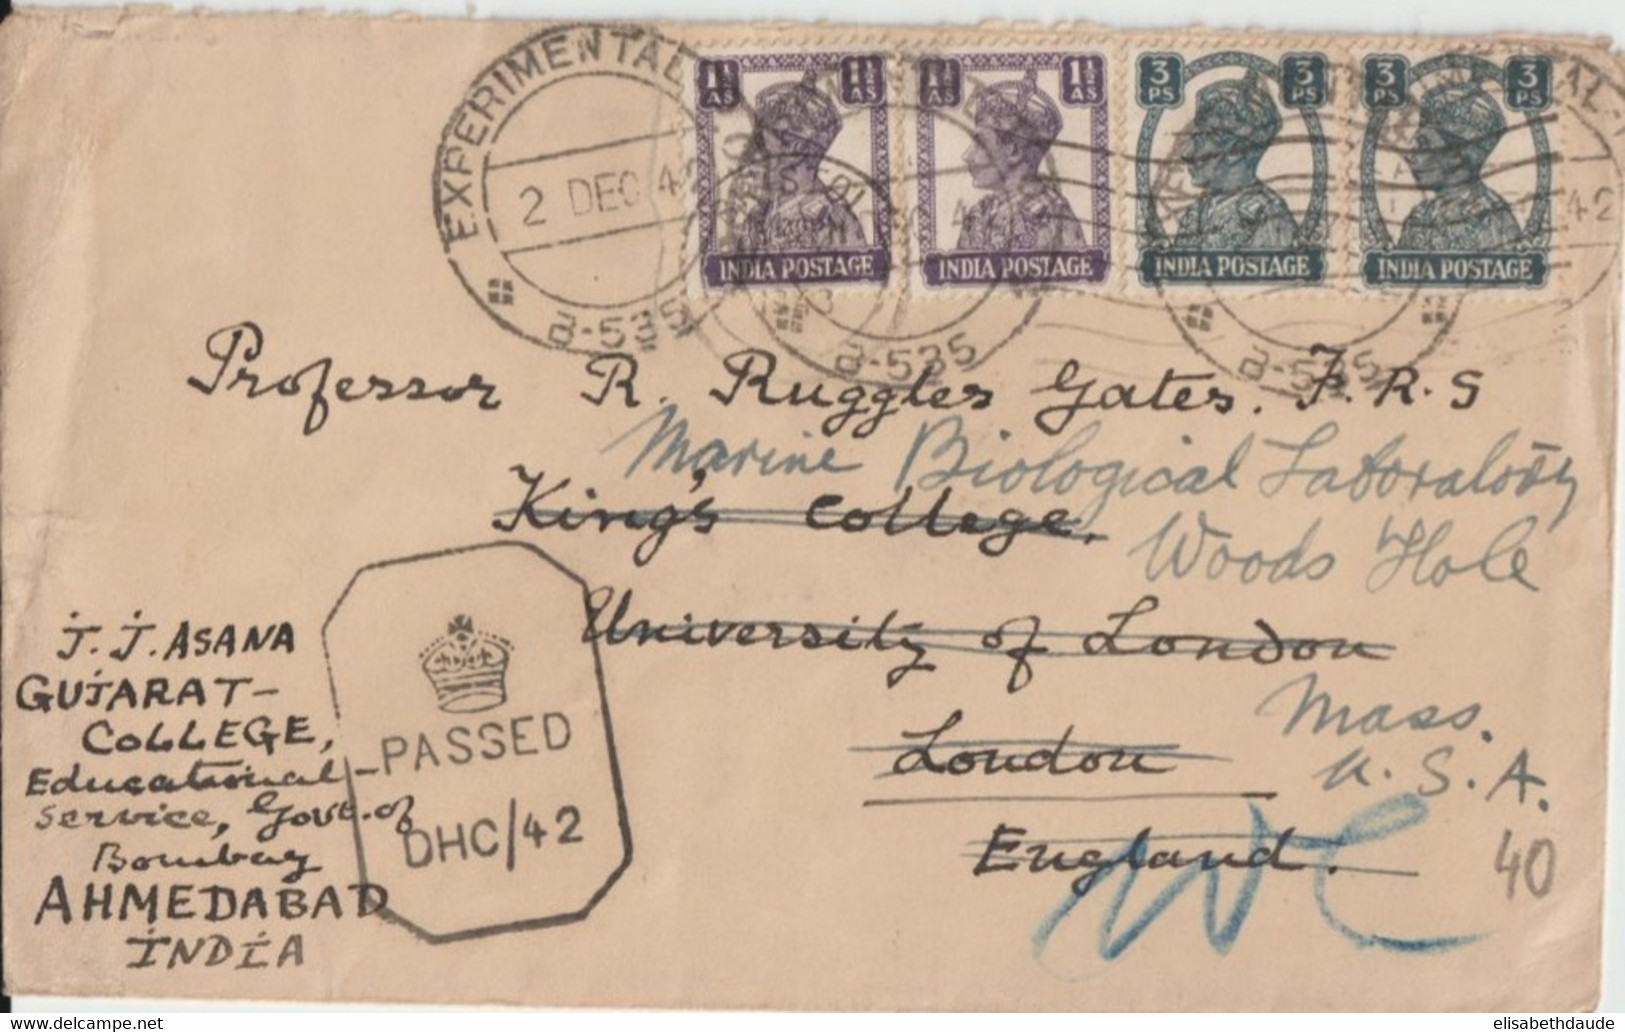 EXPERIMENTAL
2 DEC 42
B-535
1½ AS
INDIA POSTAGE
1½ AS
INDIA POSTAGE
3 PS
INDIA POSTAGE
3 PS
INDIA POSTAGE
42
B-535
B-535
Professor R. Ruggles Gates. F.R.S
Marine Biological Laboratory
King's College.
Woods Hole
University of London
Mass.
London
U.S.A.
England.
40
J. J. ASANA
GUJARAT-
COLLEGE,
Educational-
service, Govt. of
Bombay
AHMEDABAD
INDIA
PASSED
DHC/42
elisabethdaude